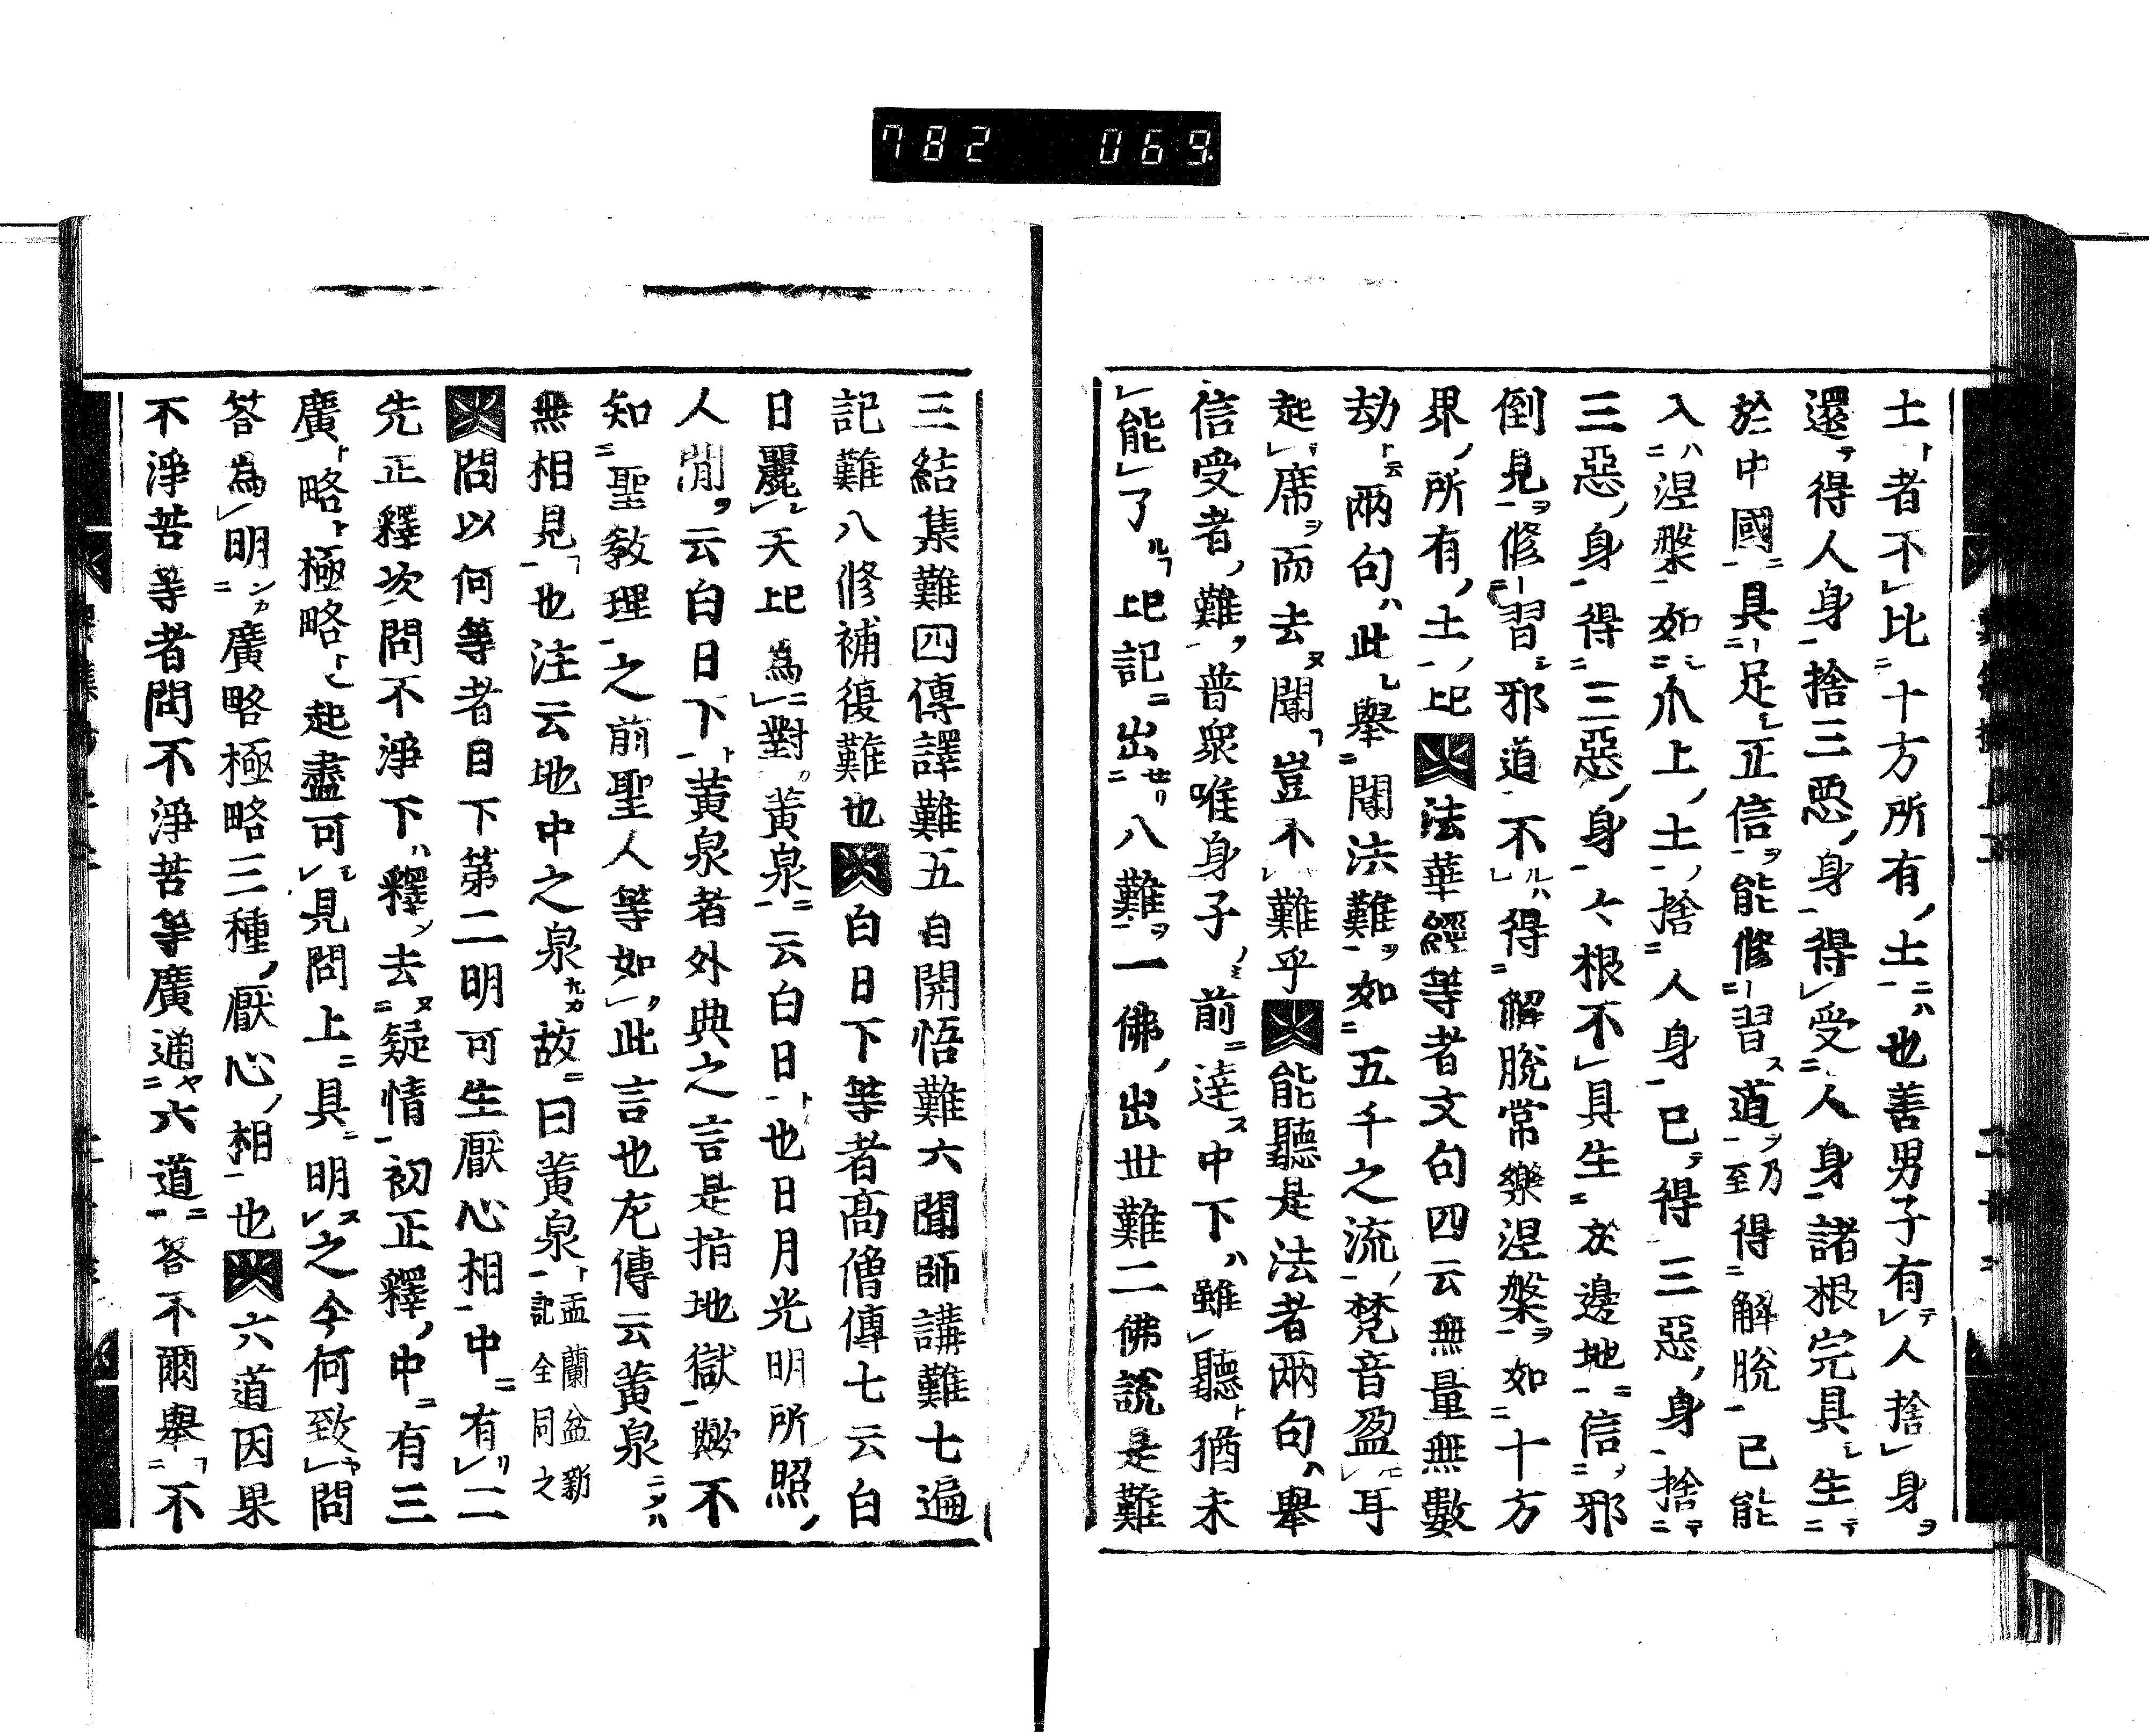 782 069
土者不比十方所有土也善男子有人捨身
還得人身捨三悪身得受人身諸根完具生
於中國具足正信能修習道乃至得解脱已能
入涅槃如爪上土捨人身已得三惡身捨
三惡身得三惡身六根不具生於邊地信邪
倒見修習邪道不得解脱常樂涅槃如十方
界所有土已法華經等者文句四云無量無數
劫兩句此舉聞法難如五千之流梵音盈耳
起席而去聞豈不難乎能聽是法者兩句舉
信受者難普衆唯身子前達中下雖聽猶未
能了已記出八難一佛出世難二佛說是難
三結集難四傳譯難五自開悟難六聞師講難七遍
記難八修補復難也白日下等者高僧傳七云白
日麗天已為對黃泉云白日也日月光明所照
人間云白日下黃泉者外典之言是指地獄歟不
知聖教理之前聖人等如此言也左傳云黃泉
無相見也注云地中之泉故曰黃泉盂蘭盆新記全同之
問以何等者目下第二明可生厭心相中有二
先正釋次問不淨下釋去疑情初正釋中有三
廣略極略起盡可見問上具明之今何致問
答為明廣略極略三種厭心相也六道因果
不淨苦等者問不淨苦等廣通六道答不爾舉不